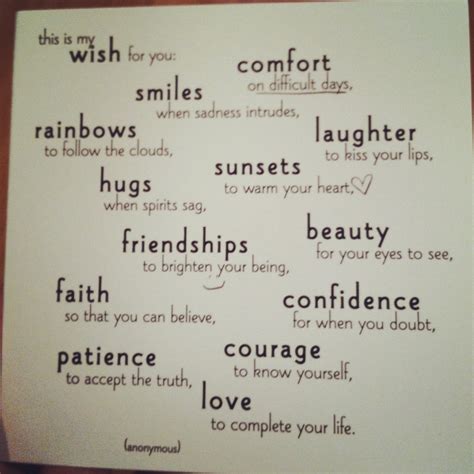 this is my
wish for you:
comfort
on difficult days,
smiles
when sadness intrudes,
rainbows
to follow the clouds,
laughter
to kiss your lips,
sunsets
to warm your heart,
hugs
when spirits sag,
beauty
for your eyes to see,
friendships
to brighten your being,
faith
so that you can believe,
confidence
for when you doubt,
courage
to know yourself,
patience
to accept the truth,
love
to complete your life.
(anonymous)